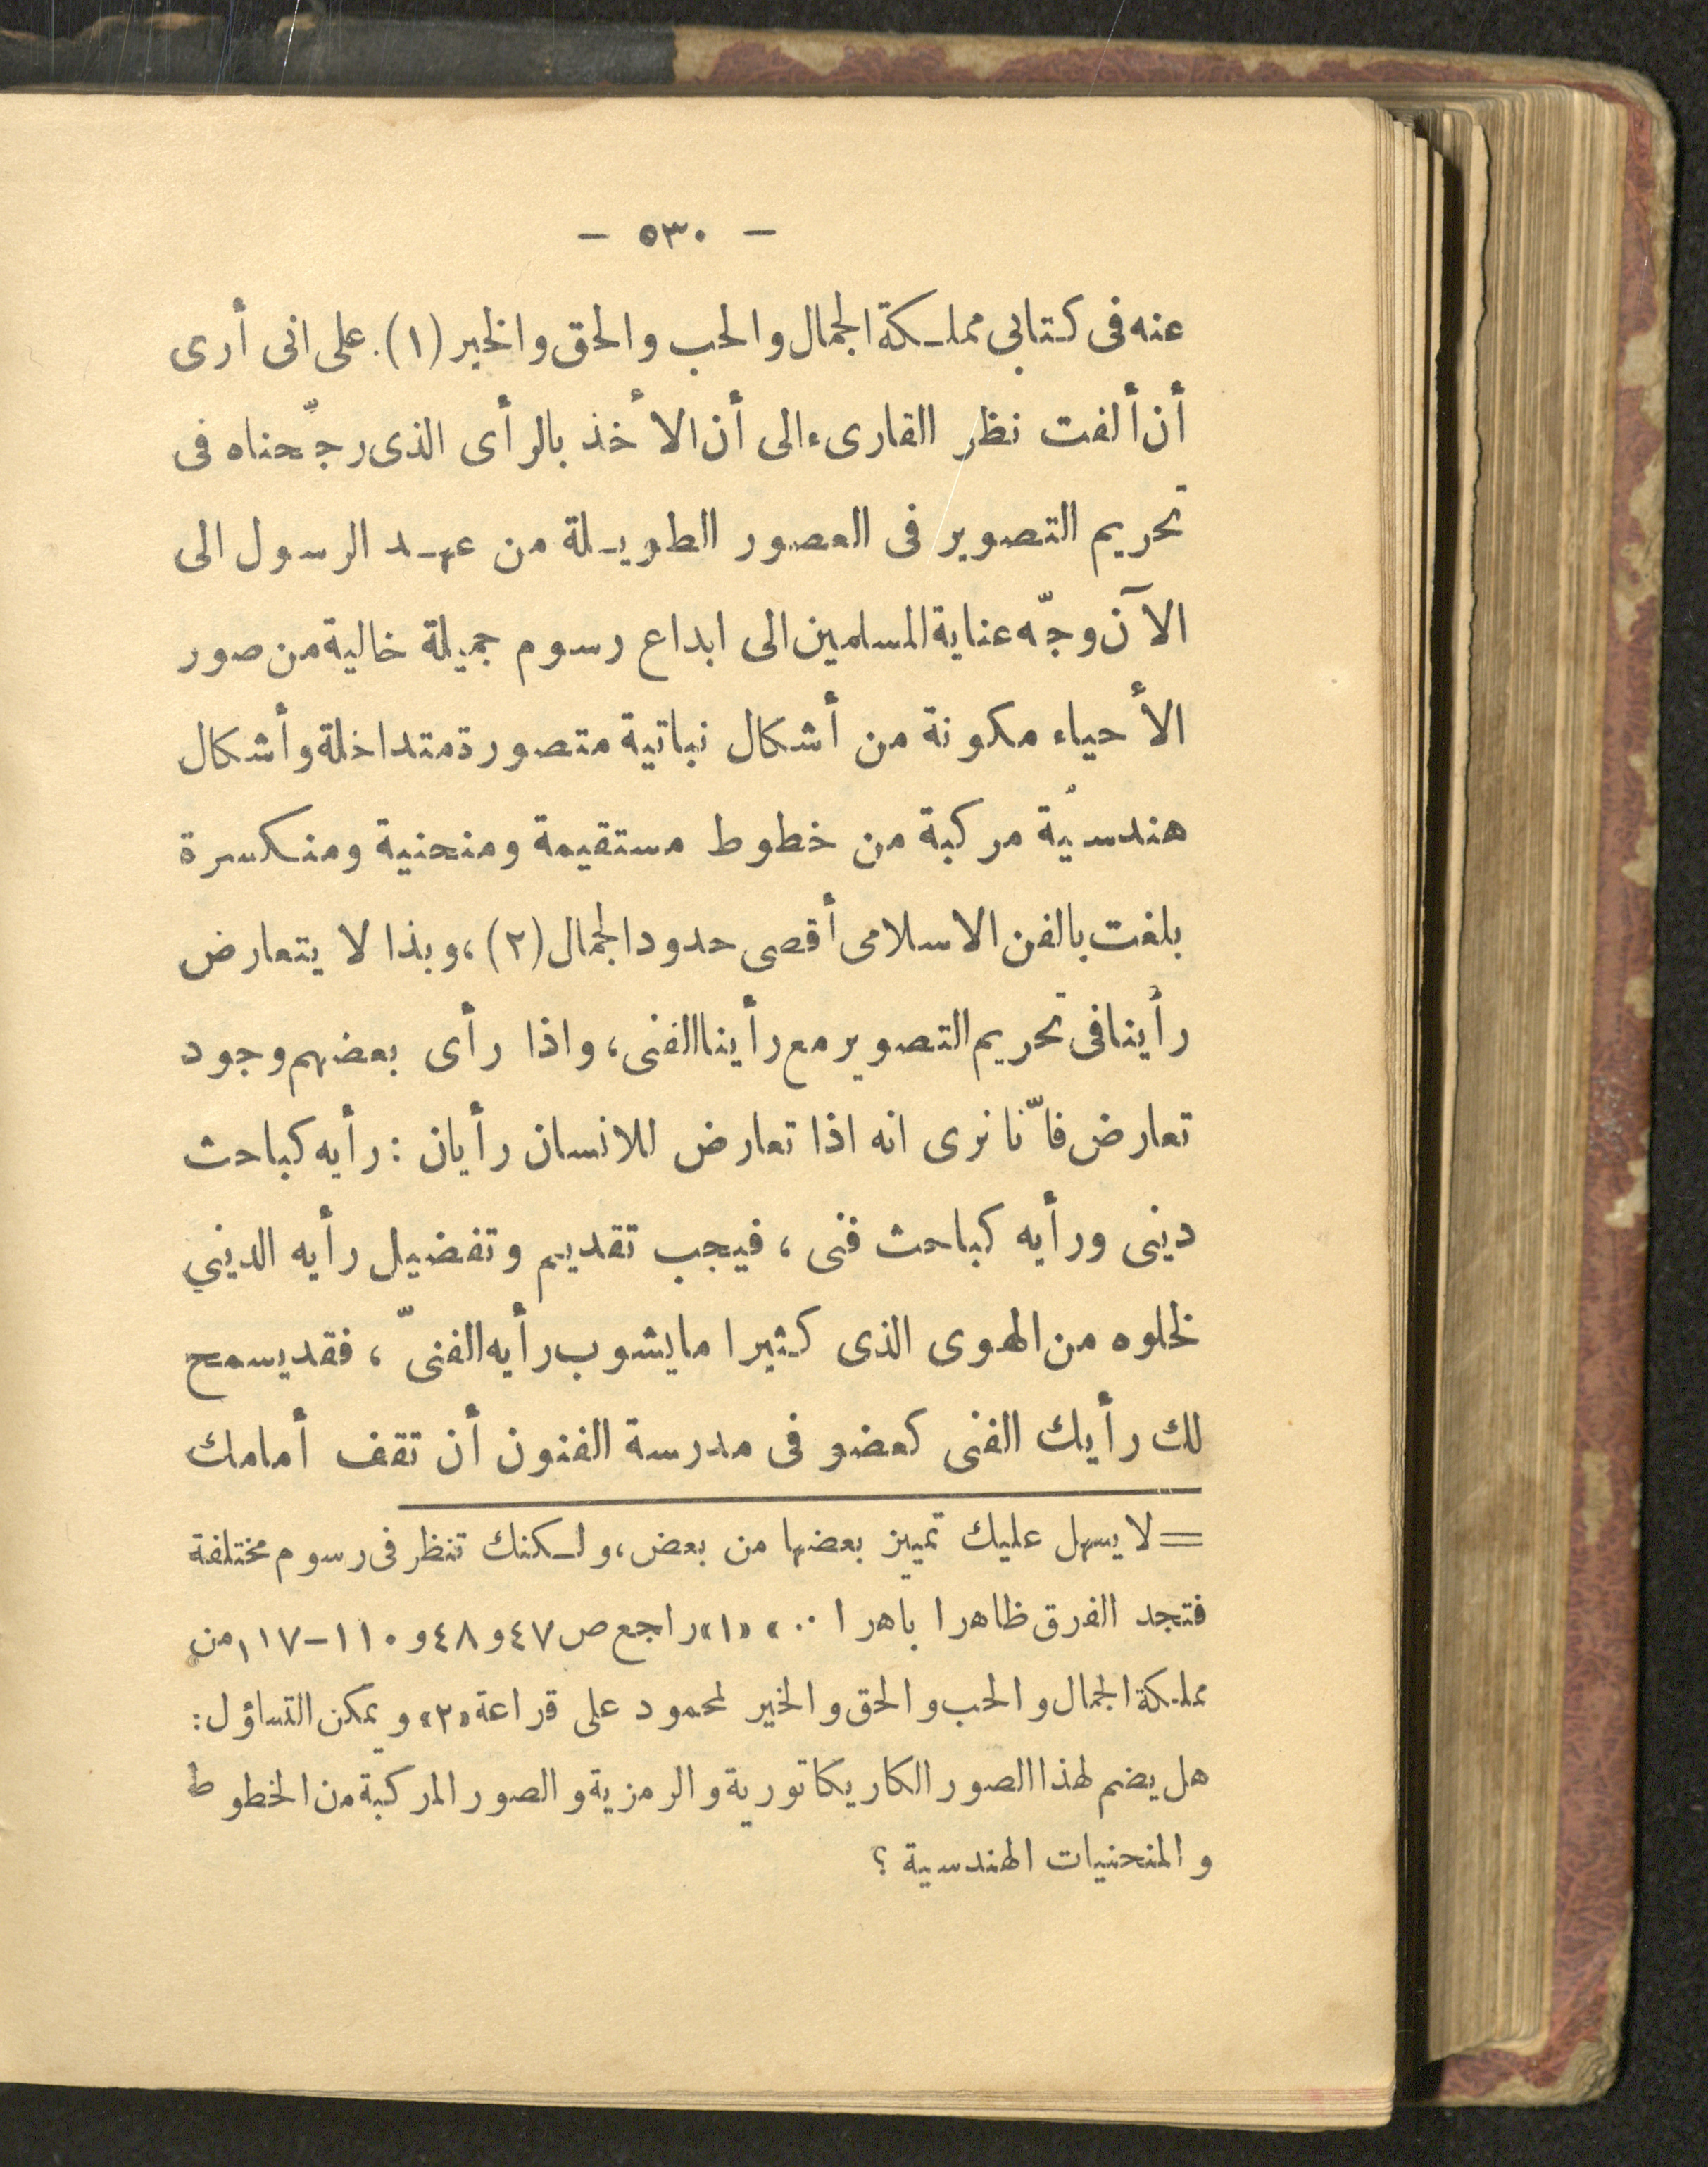 — ٥٣٠ —
عنه فى كتابى مملكة الجمال والحب والحق والخير (١). على انى أرى
أن ألفت نظر القارىء الى أن الأخذ بالرأى الذى رجّحناه فى
تحريم التصوير فى العصور الطويلة من عهد الرسول الى
الآن وجّه عناية المسلمين الى ابداع رسوم جميلة خالية من صور
الأحياء مكونة من أشكال نباتية متصورة متداخلة وأشكال
هندسية مركبة من خطوط مستقيمة ومنحنية ومنكسرة
بلغت بالفن الاسلامى أقصى حدود الجمال (٢)، وبذا لا يتعارض
رأينا فى تحريم التصوير مع رأينا الفنى، واذا رأى بعضهم وجود
تعارض فانّنا نرى انه اذا تعارض للانسان رأيان : رأيه كباحث
دينى ورأيه كباحث فنى ، فيجب تقديم وتفضيل رأيه الديني
لخلوه من الهوى الذى كثيرا ما يشوب رأيه الفنىّ ، فقد يسمح
لك رأيك الفنى كعضو فى مدرسة الفنون أن تقف أمامك
= لا يسهل عليك تمييز بعضها من بعض، ولكنك تنظر فى رسوم مختلفة
فتجد الفرق ظاهرا باهرا ..» «١» راجع ص ٤٧ و ٤٨ و ١١٠–١١٧ من
مملكة الجمال والحب والحق والخير لمحمود على قراعة «٢» ويمكن التساؤل:
هل يضم لهذا الصور الكاريكاتورية والرمزية والصور المركبة من الخطوط
والمنحنيات الهندسية ؟